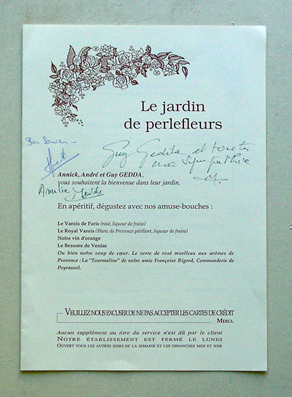 Le jardin
de perlefleurs
Guy Gedda et toute
Annick, André et Guy GEDDA,
vous souhaitent la bienvenue dans leur jardin.
En apéritif, dégustez avec nos amuse-bouches :
Le Varois de Paris (rosé, liqueur de fraise)
Le Royal Varois (Blanc de Provence pétillant, liqueur de fraise)
Notre vin d'orange
Le Beaume de Venise
Ou bien notre coup de cœur. Le verre de rosé moelleux aux arômes de
Provence : La "Tourmaline" de notre amie Françoise Rigord, Commanderie de
Peyrassol.
VEUILLEZ NOUS EXCUSER DE NE PAS ACCEPTER LES CARTES DE CRÉDIT
MERCI.
Aucun supplément au titre du service n'est dû par le client
NOTRE ÉTABLISSEMENT EST FERMÉ LE LUNDI
OUVERT TOUS LES AUTRES SOIRS DE LA SEMAINE ET LES DIMANCHES MIDI ET SOIR